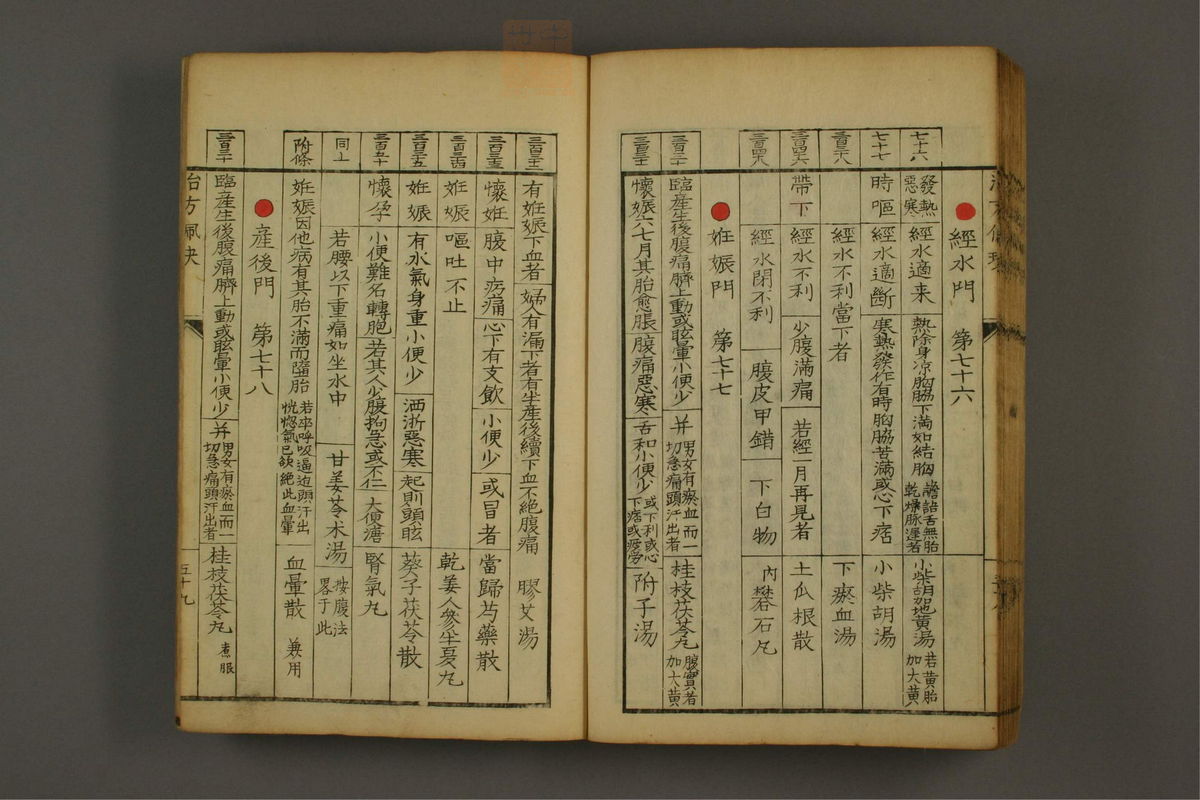 經水門 第七十六
七十六 發熱惡寒 經水適来 熱除身凉胸脇下満如結胸 譫語舌無胎乾燥脉遲者 小柴胡加地黄湯 若黄胎加大黄
七十七 時嘔 經水適断 寒熱發作有時胸脇苦満或心下痞 小柴胡湯
經水不利當下者 下瘀血湯
帶下 經水不利 少腹満痛 若經一月再見者 土瓜根散
經水閉不利 腹皮甲錯 下白物 内礬石丸
妊娠門 第七十七
臨産生後腹痛臍上動或眩暈小便少 并 男女有瘀血而一切急痛頭汗出者 桂枝茯苓丸 腹實者加大黄
懷娠六七月其胎愈脹 腹痛惡寒 舌和小便少 或下利或心下痞或疲労 附子湯
有妊娠下血者 婦人有漏下者有半産後續下血不絶腹痛 膠艾湯
懷妊 腹中㽲痛 心下有支飲 小便少 或冒者 當歸芍藥散
妊娠 嘔吐不止 乾姜人參半夏丸
妊娠 有水氣身重小便少 洒浙惡寒 起則頭眩 葵子茯苓散
懷孕 小便難名轉胞 若其人少腹拘急或不仁 大便溏 腎氣丸
同上 若腰以下重痛如坐水中 甘姜苓朮湯 按腹法畧于此
附條 妊娠因他病有其胎不満而墮胎 若卒呼吸逼迫頭汗出恍惚氣已欲絶此血暈 血暈散 兼用
産後門 第七十八
臨産生後腹痛臍上動或眩暈小便少 并 男女有瘀血而一切急痛頭汗出者 桂枝茯苓丸 煮服
五十九